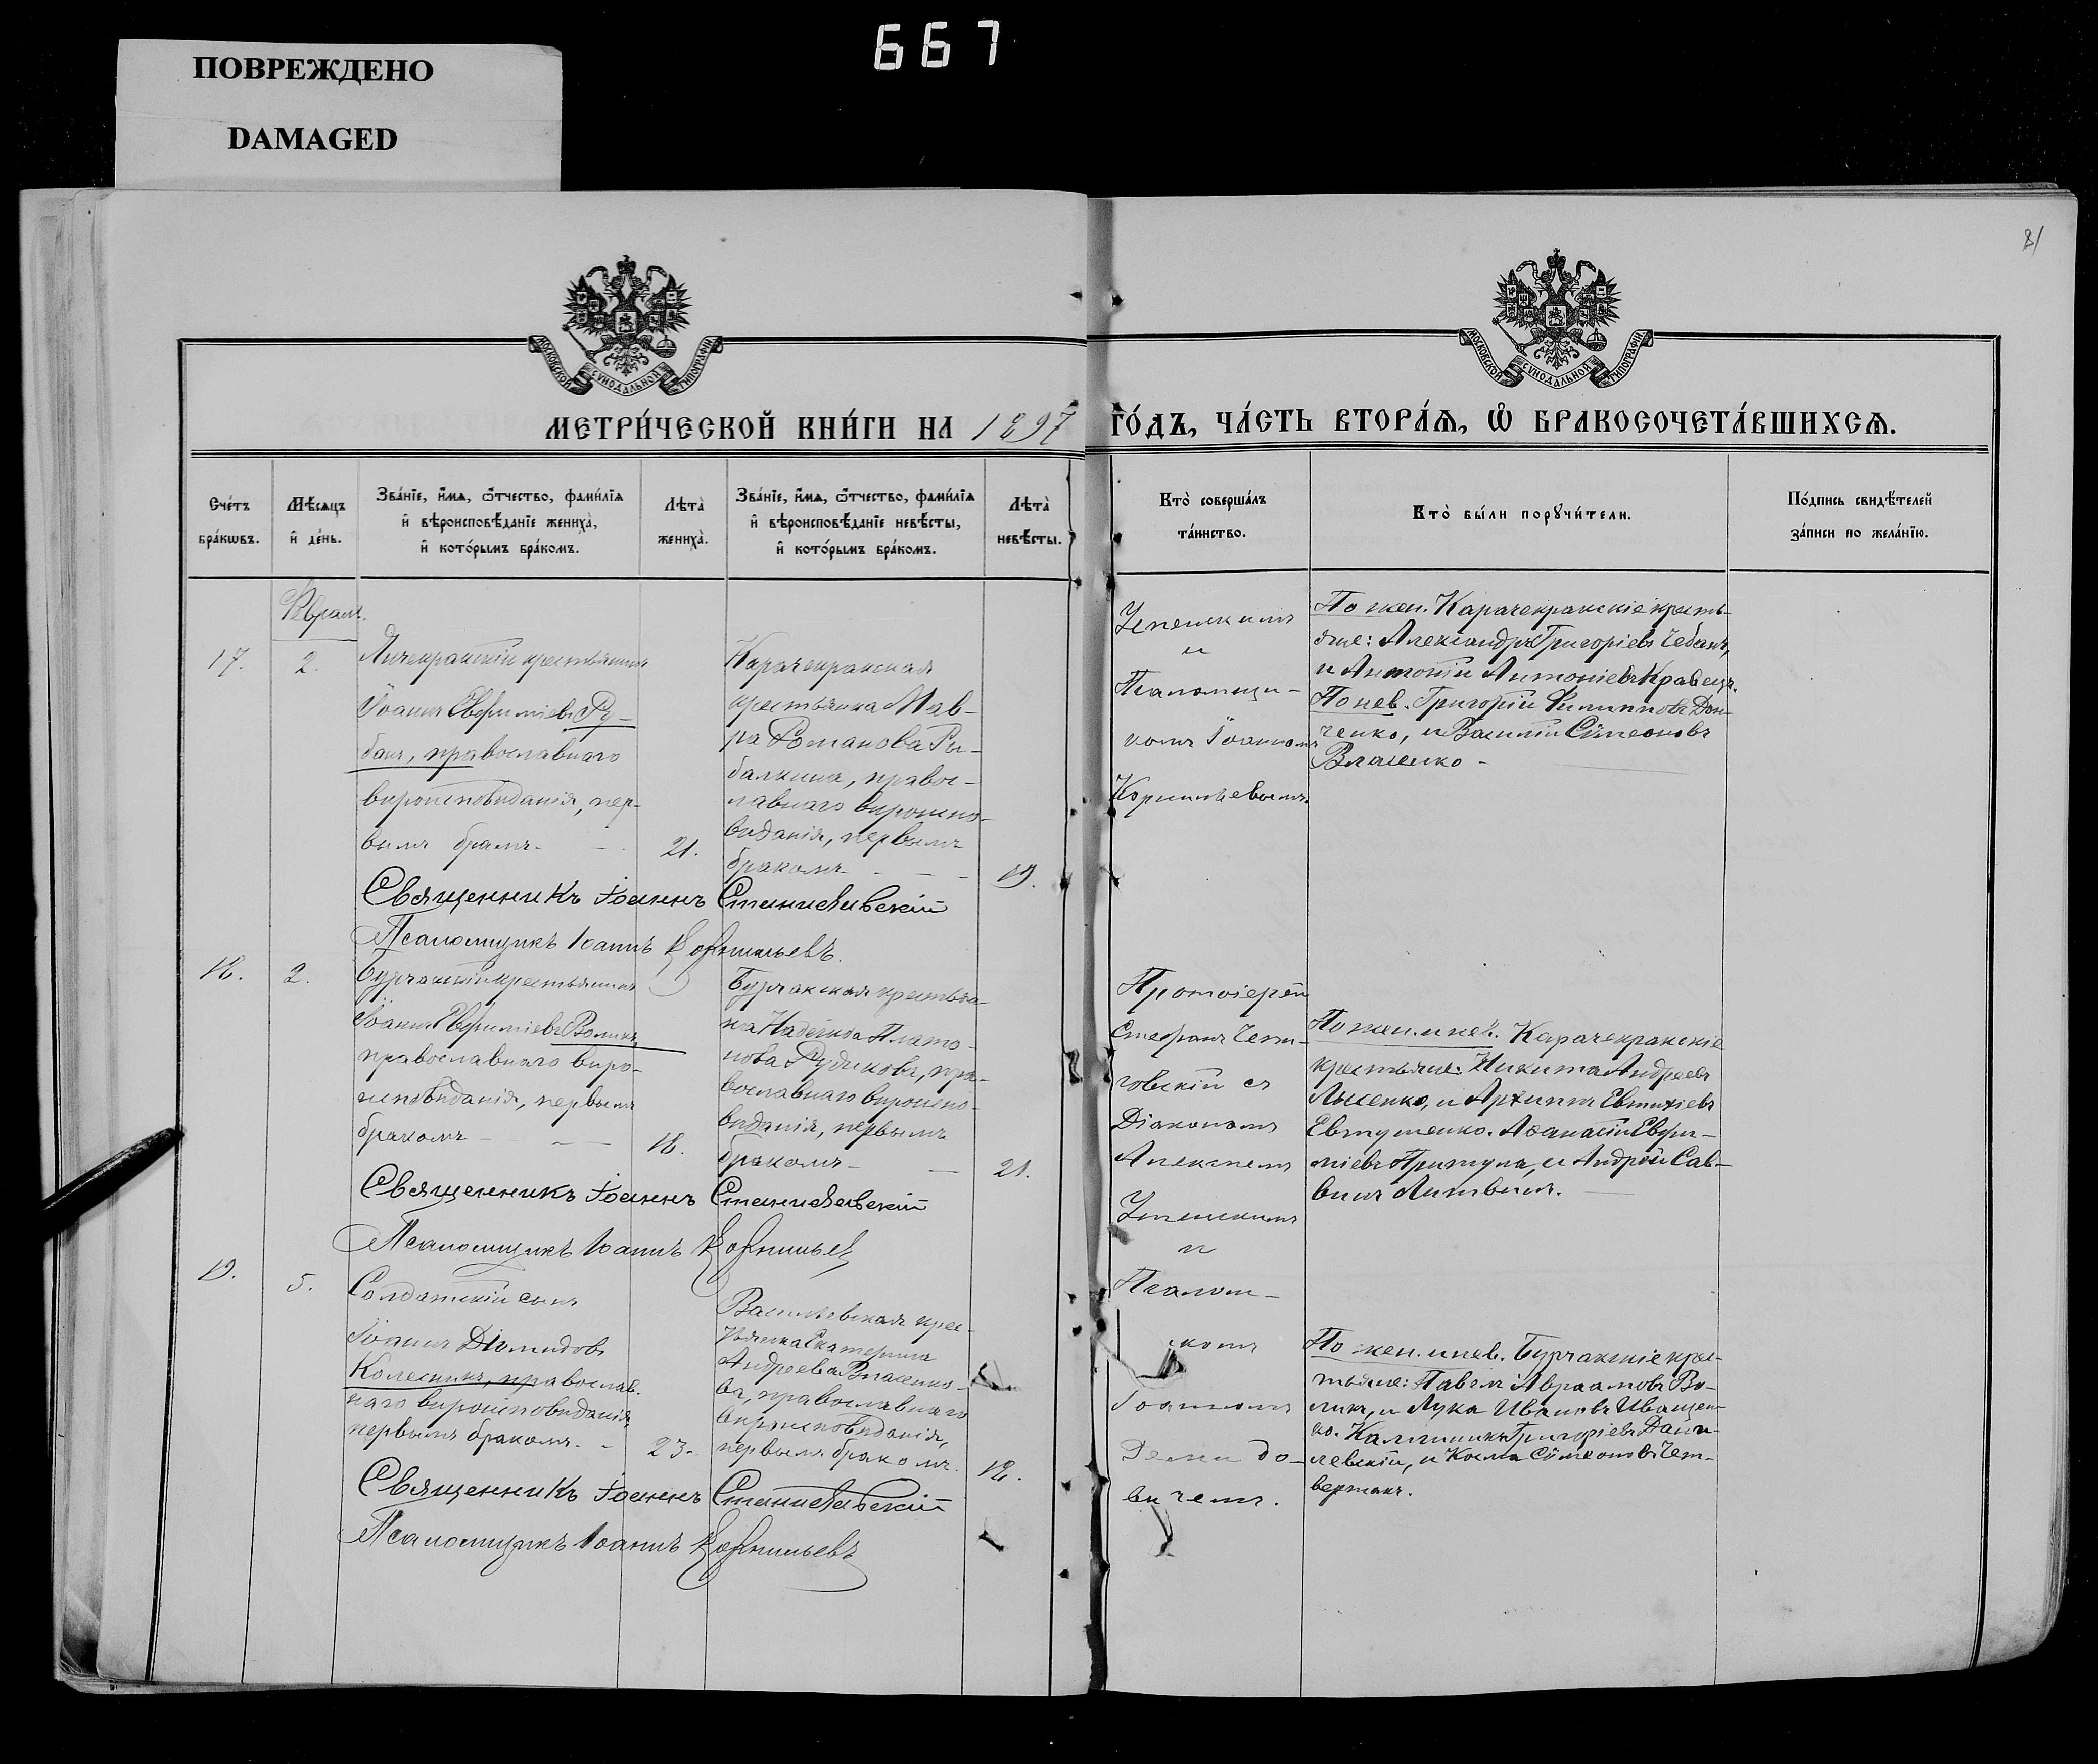 667
ПОВРЕЖДЕНО
DAMAGED
81
МОСКОВСКОЙ СѴНОДАЛЬНОЙ ТИПОГРАФІИ
МОСКОВСКОЙ СѴНОДАЛЬНОЙ ТИПОГРАФІИ
МЕТРИ́ЧЕСКОЙ КНИ́ГИ НА 1897 ГО́ДЪ, ЧА́СТЬ ВТОРА́Ѧ, Ѽ БРАКОСОЧЕТА́ВШИХСѦ.
Сче́тъ
бра́кѡвъ.
Мѣ́сѧцъ
и҆ де́нь.
Зва́нїе, и҆́мѧ, ѻ҆́тчество, фами́лїѧ
и҆ вѣроисповѣ́данїе жениха̀,
и҆ кото́рымъ бра́комъ.
Лѣта̀
жениха̀.
Зва́нїе, и҆́мѧ, ѻ҆́тчество, фами́лїѧ
и҆ вѣроисповѣ́данїе невѣ́сты,
и҆ кото́рымъ бра́комъ.
Лѣта̀
невѣ́сты.
Кто̀ соверша́лъ
та́инство.
Кто̀ бы́ли порꙋчи́тели.
По́дпись свидѣ́телей
за́писи по жела́нїю.
17.
2.
крестьянинъ
Іоаннъ Евфиміевъ Ру-
банъ, православнаго
вѣроисповѣданія, пер-
вымъ
21.
Карачекракская
крестьянка Мав-
ра Романова Ры-
балкина, правос-
лавнаго вѣроиспо-
вѣданія, первымъ
бракомъ
19.
и
Псаломщи-
комъ Іоанномъ
Корнильевымъ.
По жен. Карачекракскіе кресть-
яне: Александръ Григоріевъ Чебанъ,
и Антоній Антоніевъ Кравецъ.
По нев. Григорій Филипповъ Дон-
ченко, и Василій Сѵмеоновъ
Власенко
Священникъ Іоаннъ Станиславскій
Псаломщикъ Іоаннъ Корнильевъ.
18.
2.
Бурчакскій крестьянинъ
Іоаннъ Евфиміевъ Воликъ,
православнаго вѣро-
исповѣданія, первымъ
бракомъ
18.
Бурчакская крестьян-
ка Надежда Плато-
нова Рудикова, пра-
вославнаго вѣроиспо-
вѣданія, первымъ
бракомъ
21.
Протоіерей
Стефанъ
съ
Діакономъ
Алексѣемъ
и
Псалом-
комъ
Іоанномъ
Деми до-
вичемъ.
По жен. и нев. Карачекракскіе
крестьяне: Никита Андреевъ
Лысенко, и Архиппъ Евтихіевъ
Евтушенко. Аѳанасій Евфи-
міевъ Притула, и Андрей Сав-
винъ Литвинъ.
Священникъ Іоаннъ Станиславскій
Псаломщикъ Іоаннъ Корнильевъ
19.
5.
Солдатскій сынъ
Іоаннъ Діомидовъ
Колесникъ, православ-
наго вѣроисповѣданія,
первымъ бракомъ.
23.
Васильевская крес-
тьянка Екатерина
Андреева Власенко-
ва, православнаго
вѣроисповѣданія,
первымъ бракомъ.
18.
По жен. и нев. Бурчакскіе крес-
тьяне: Павелъ Авраамовъ Во-
ликъ, и Лука Ивановъ Иващен-
ко. Каллиникъ Григоріевъ Дани-
левскій, и Косма Сѵмеоновъ Чет-
вертакъ.
Священникъ Іоаннъ Станиславскій
Псаломщикъ Іоаннъ Корнильевъ